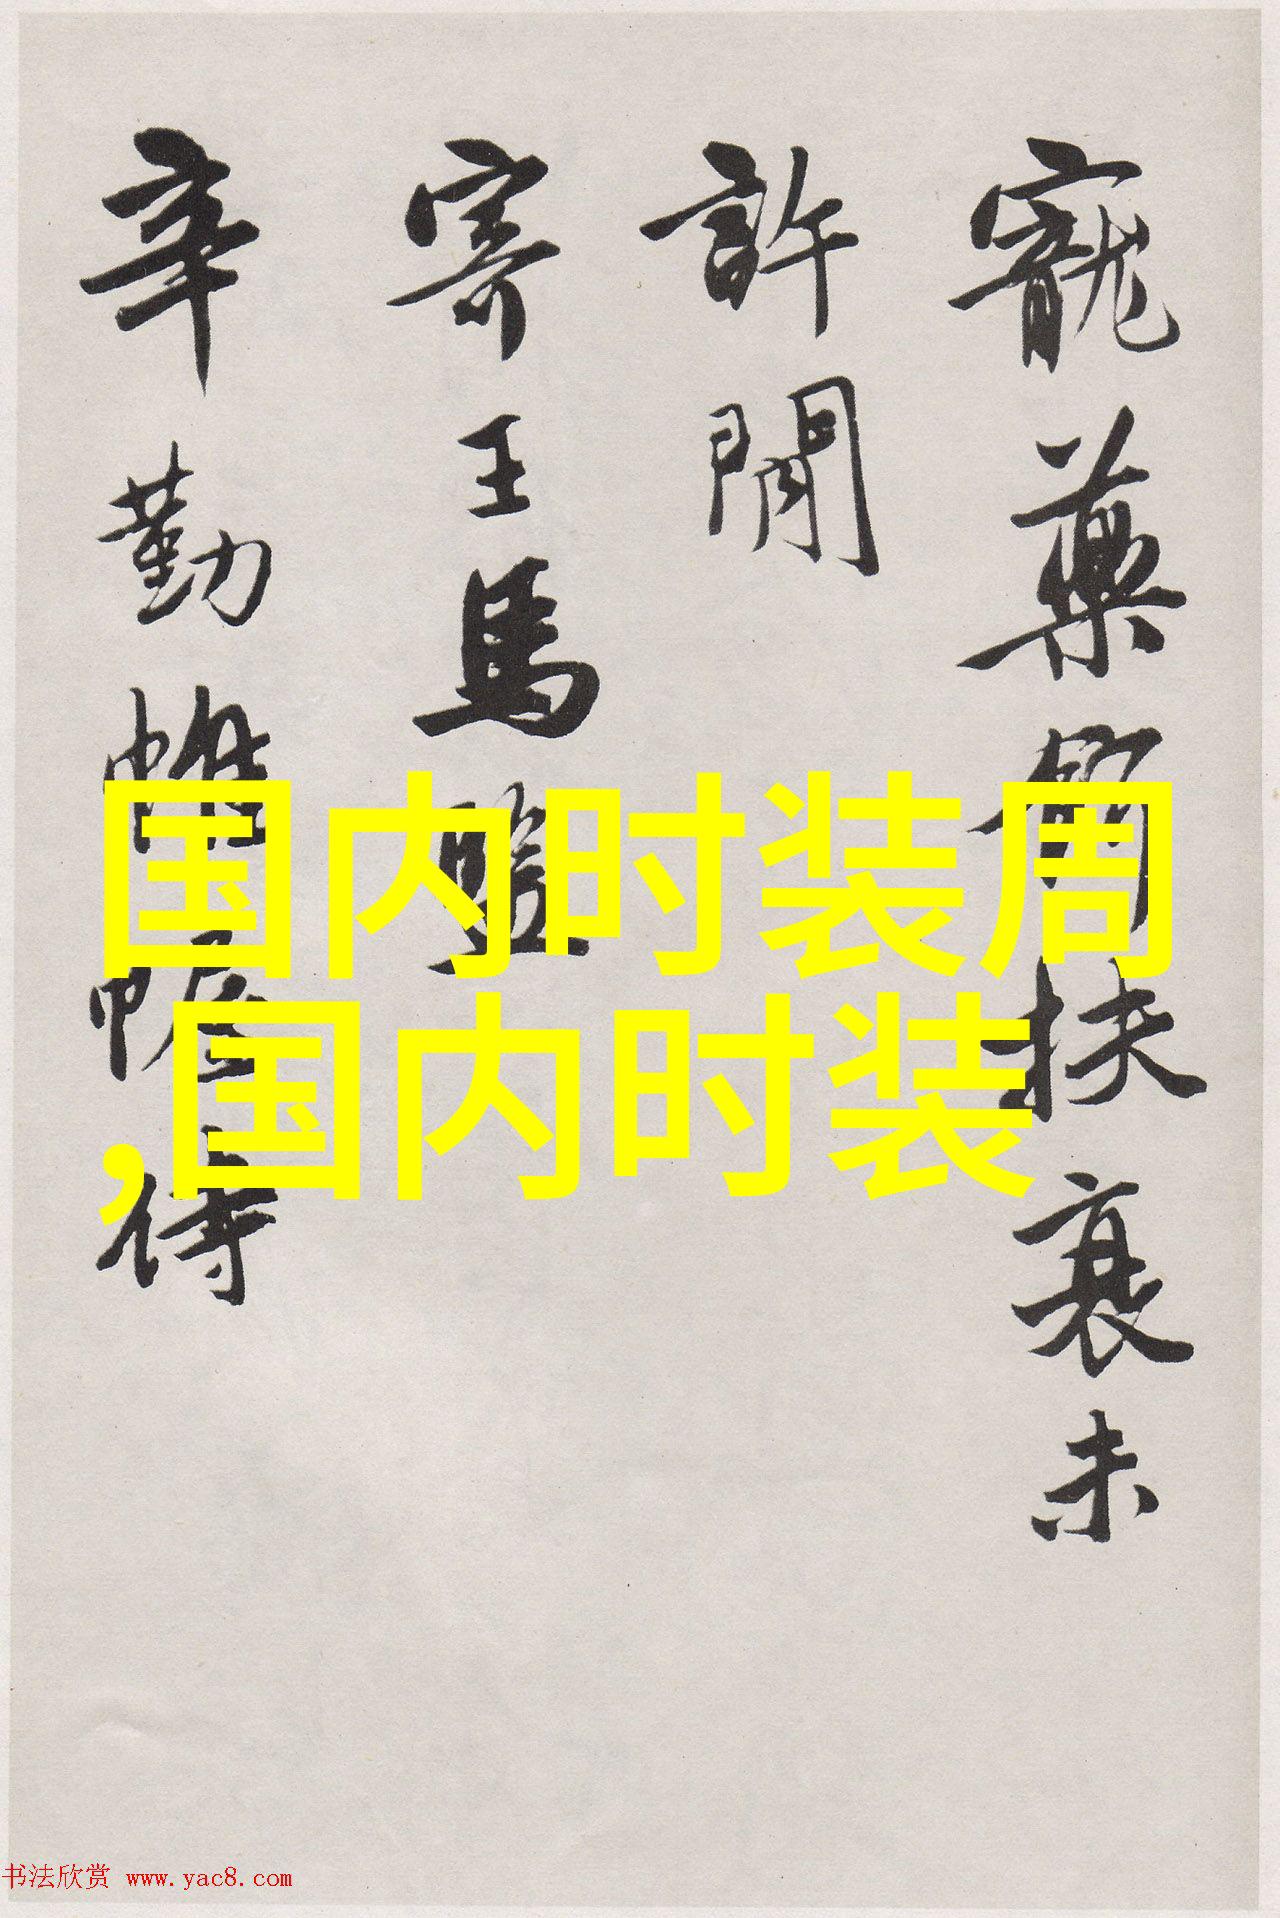 寵藥扶衰未
許閒
寄王馬監
辛勤帷幄侍
国内时装周
,国内时装
书法欣赏 www.yac8.com